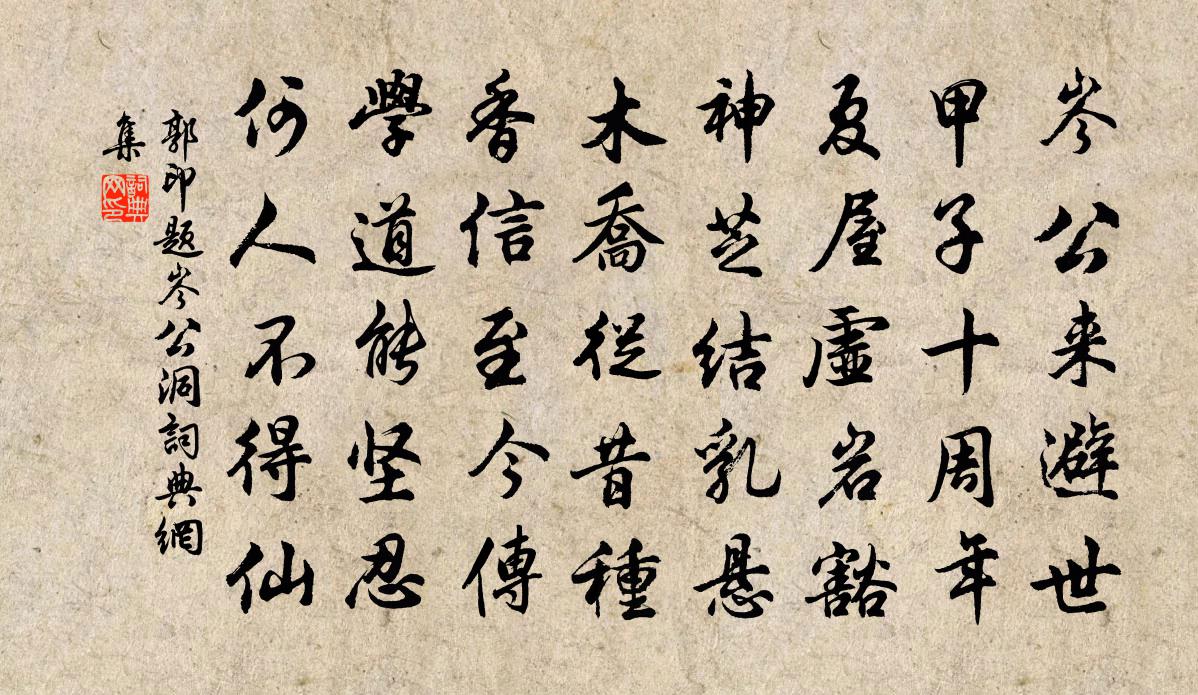 岑公来避世
甲子十周年
夏屋虚岩豁
神芝结乳悬
木喬從昔種
香信至今傳
學道能坚忍
何人不得仙
郭印题岑公洞詞典網
集
詞典
网印